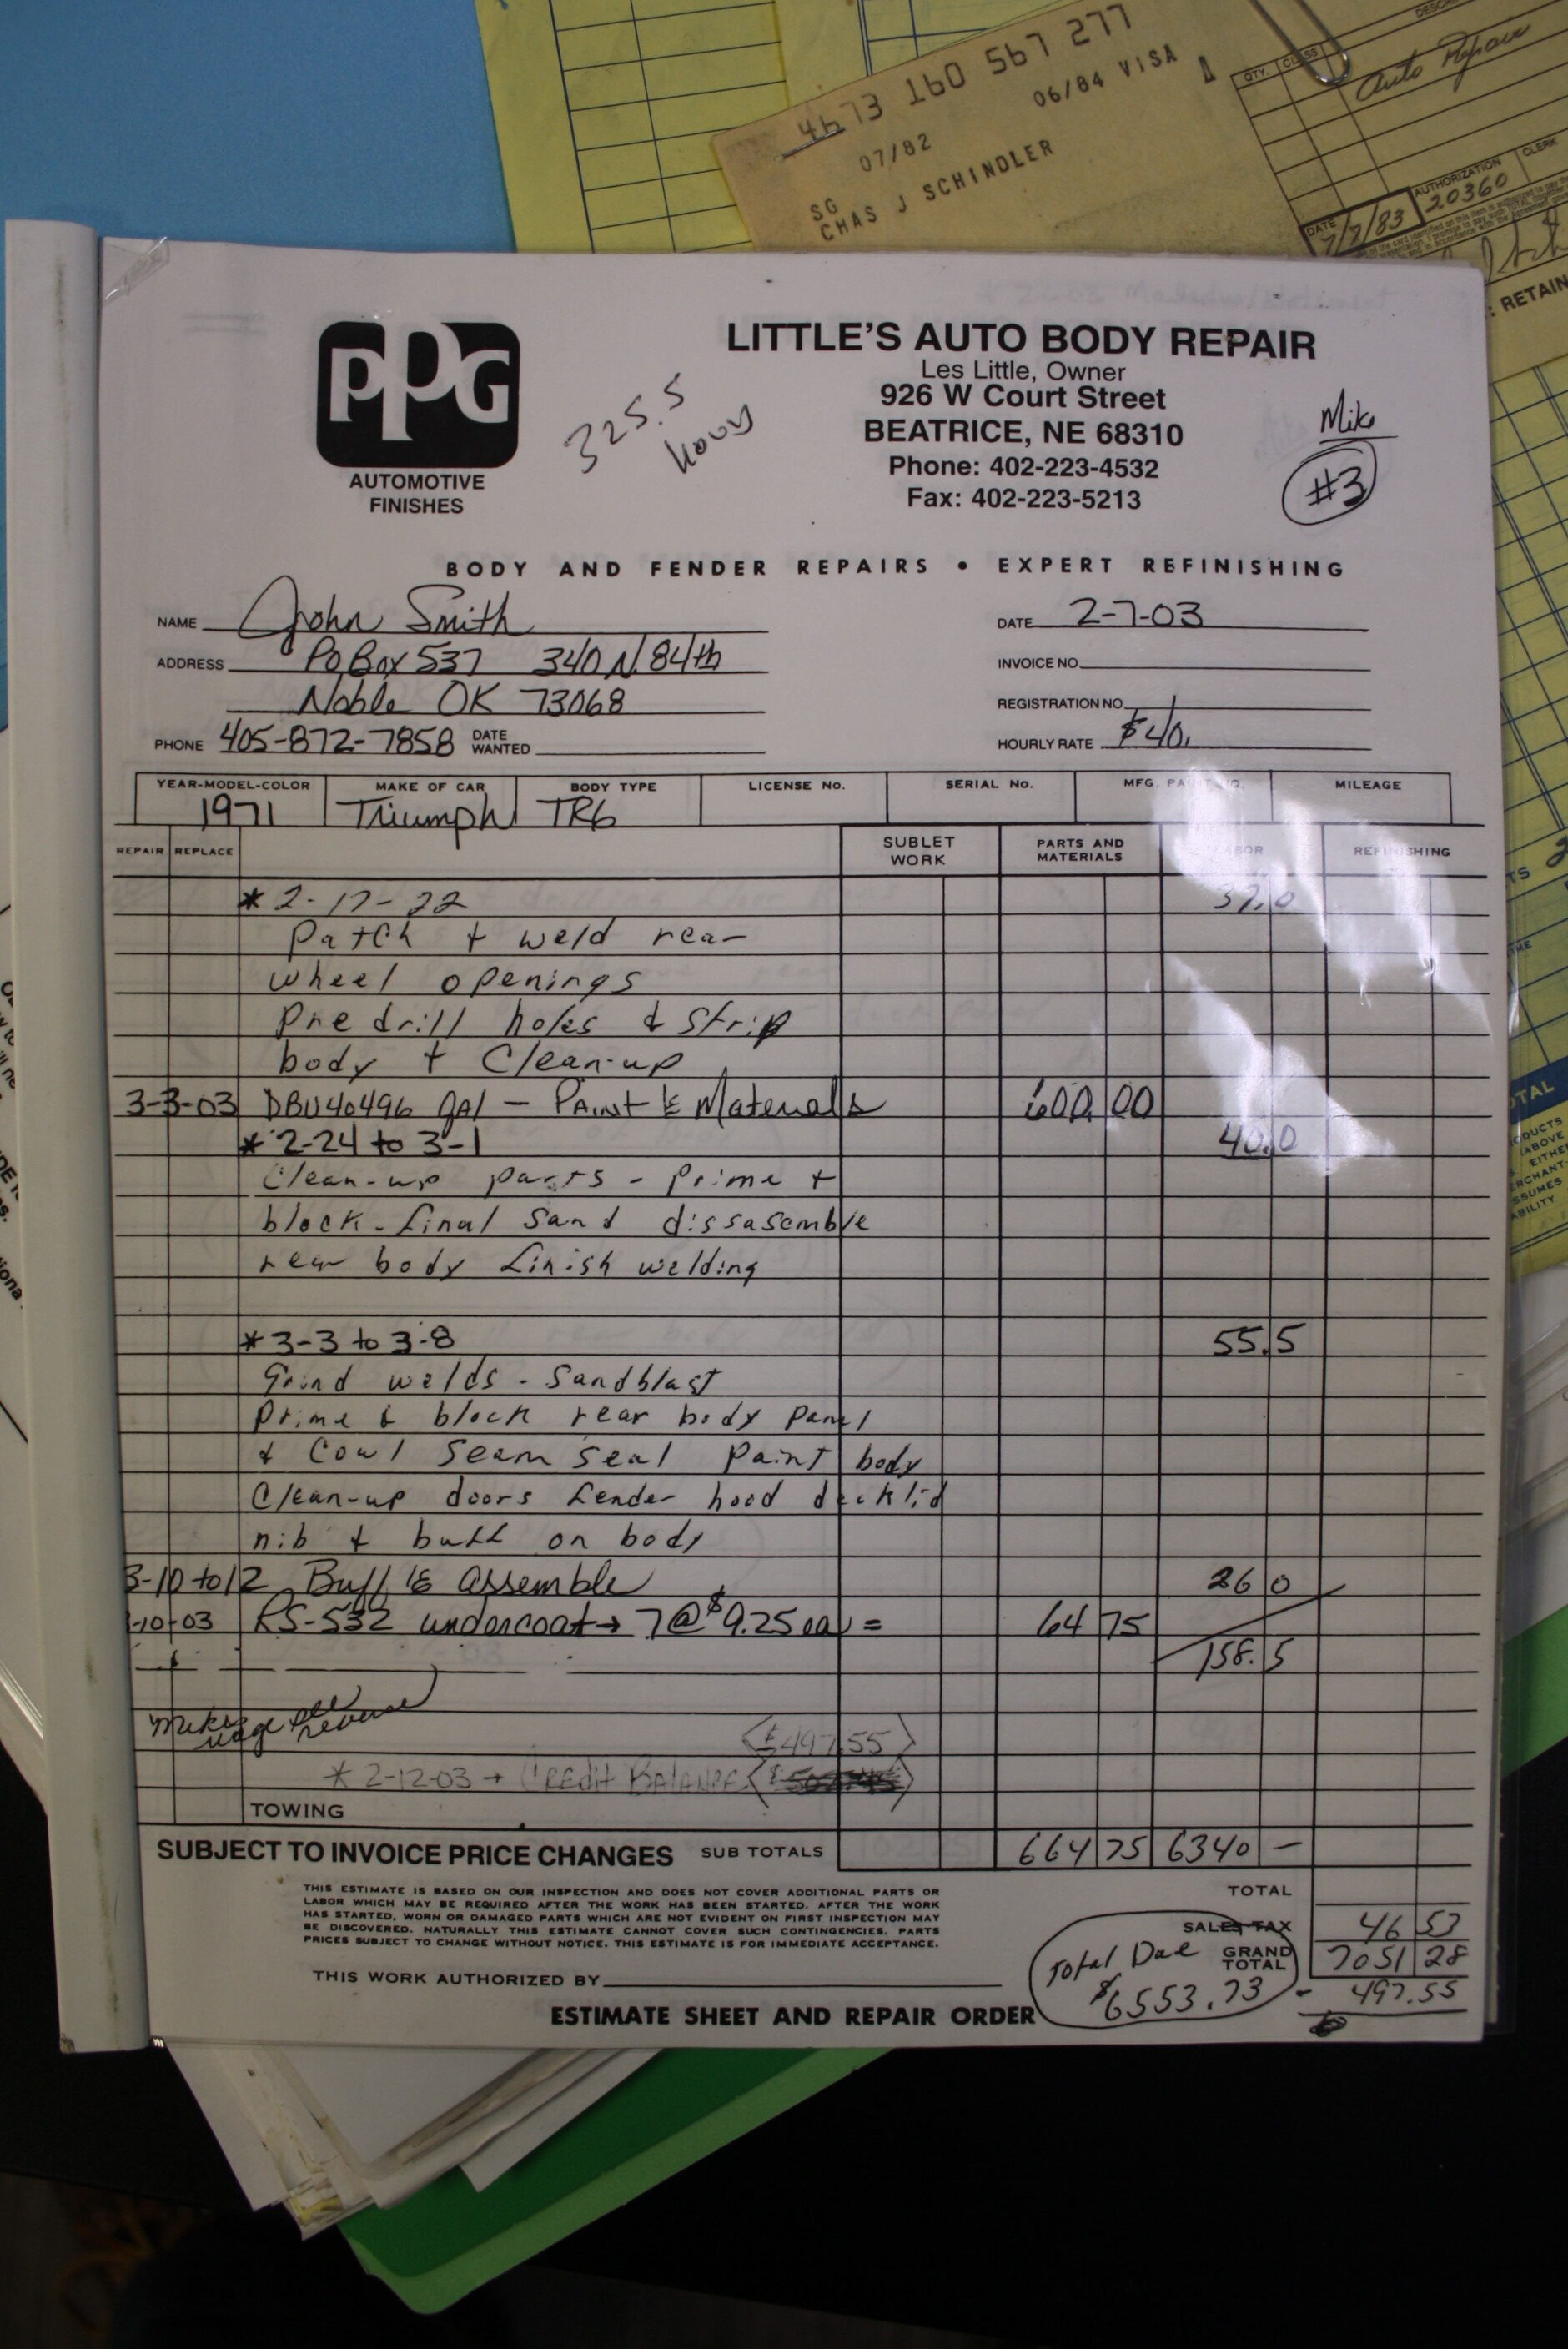 4673 160 567 277
07/82 06/84 VISA
SG
CHAS J SCHINDLER
QTY. CLASS
Auto Repair
DATE 7/7/83
AUTHORIZATION 20360
CLERK
RETAIN
PPG
AUTOMOTIVE
FINISHES
325.5
hours
LITTLE'S AUTO BODY REPAIR
Les Little, Owner
926 W Court Street
BEATRICE, NE 68310
Phone: 402-223-4532
Fax: 402-223-5213
Mike
#3
BODY AND FENDER REPAIRS • EXPERT REFINISHING
NAME John Smith
DATE 2-7-03
ADDRESS PO Box 537 340 N. 84th
INVOICE NO.
Noble OK 73068
REGISTRATION NO.
PHONE 405-872-7858 DATE WANTED
HOURLY RATE $40.
YEAR-MODEL-COLOR MAKE OF CAR BODY TYPE LICENSE No. SERIAL No. MFG. PAINT NO. MILEAGE
1971 Triumph TR6
REPAIR REPLACE SUBLET WORK PARTS AND MATERIALS LABOR REFINISHING
* 2-17-22 37.0
Patch + weld rear
wheel openings
Predrill holes & strip
body + Clean-up
3-3-03 DBU40496 gal - Paint & Materials 600.00
* 2-24 to 3-1 40.0
Clean-up parts - prime +
block - final sand dissasemble
rear body finish welding
* 3-3 to 3-8 55.5
Grind welds - sandblast
Prime & block rear body panel
& Cowl seam seal paint body
Clean-up doors fender hood decklid
nib + buff on body
3-10 to 12 Buff & assemble 26 0
-10-03 RS-532 undercoat → 7 @ $9.25 ea = 64 75
158.5
reverse
<$497.55>
* 2-12-03 → Credit Balance
TOWING
SUBJECT TO INVOICE PRICE CHANGES SUB TOTALS 664 75 6340 -
THIS ESTIMATE IS BASED ON OUR INSPECTION AND DOES NOT COVER ADDITIONAL PARTS OR
LABOR WHICH MAY BE REQUIRED AFTER THE WORK HAS BEEN STARTED. AFTER THE WORK
HAS STARTED, WORN OR DAMAGED PARTS WHICH ARE NOT EVIDENT ON FIRST INSPECTION MAY
BE DISCOVERED. NATURALLY THIS ESTIMATE CANNOT COVER SUCH CONTINGENCIES. PARTS
PRICES SUBJECT TO CHANGE WITHOUT NOTICE. THIS ESTIMATE IS FOR IMMEDIATE ACCEPTANCE.
TOTAL
SALES TAX 46 53
GRAND TOTAL 7051 28
- 497.55
Total Due
$6553.73
THIS WORK AUTHORIZED BY
ESTIMATE SHEET AND REPAIR ORDER